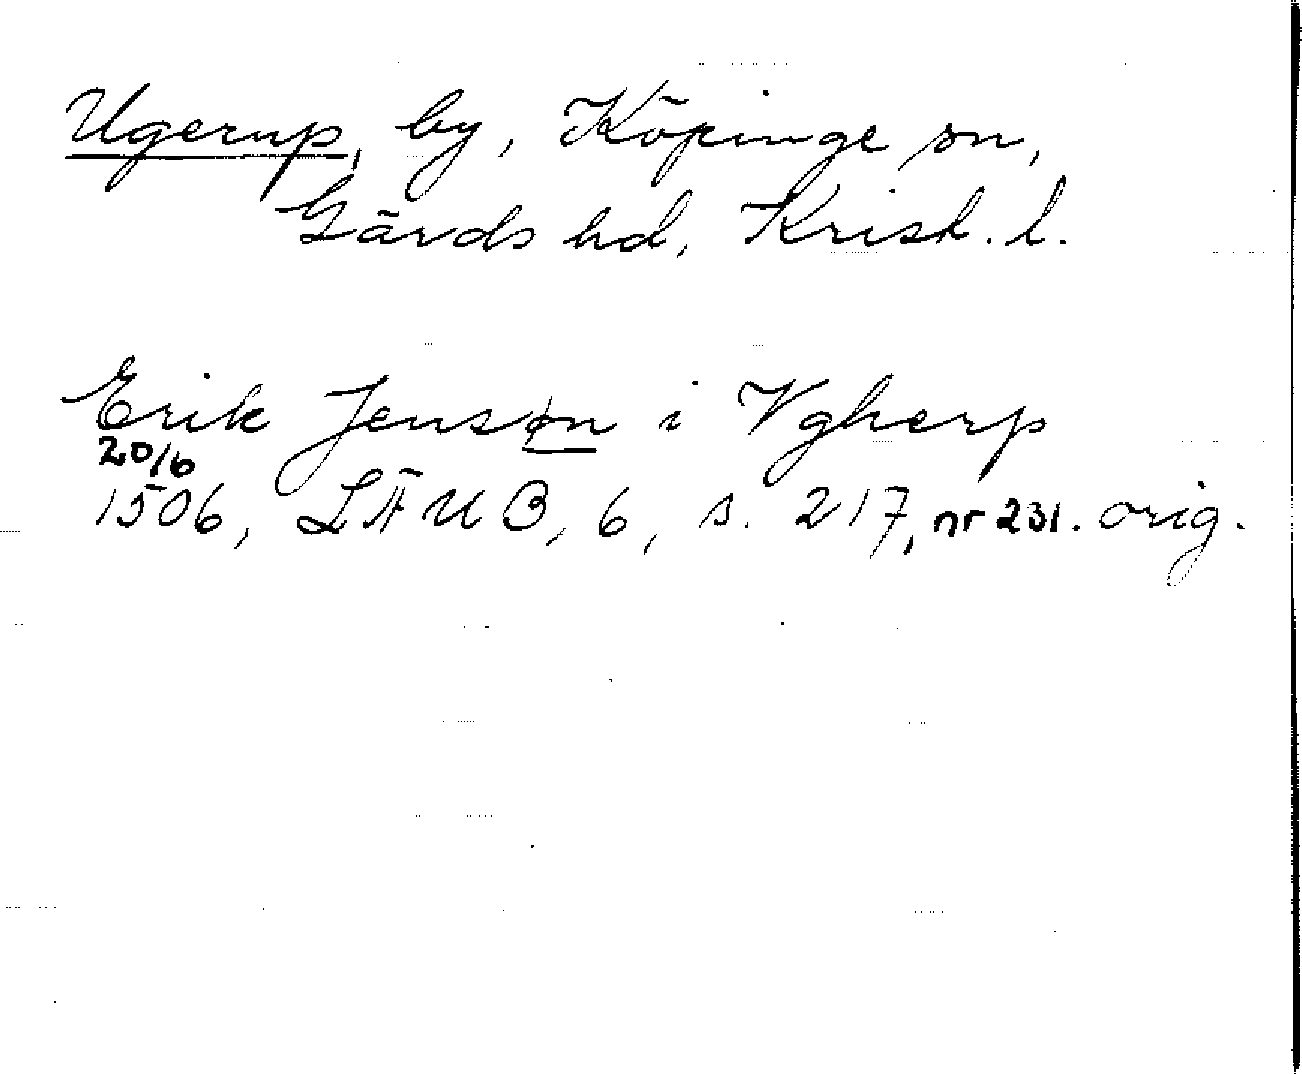 Ugerup, by, Köpinge sn,
Gärds hd, Krist. l.
Erik Jensøn i Vgherp
20/6
1506, LÄUB, 6, s. 217, nr 231. orig.